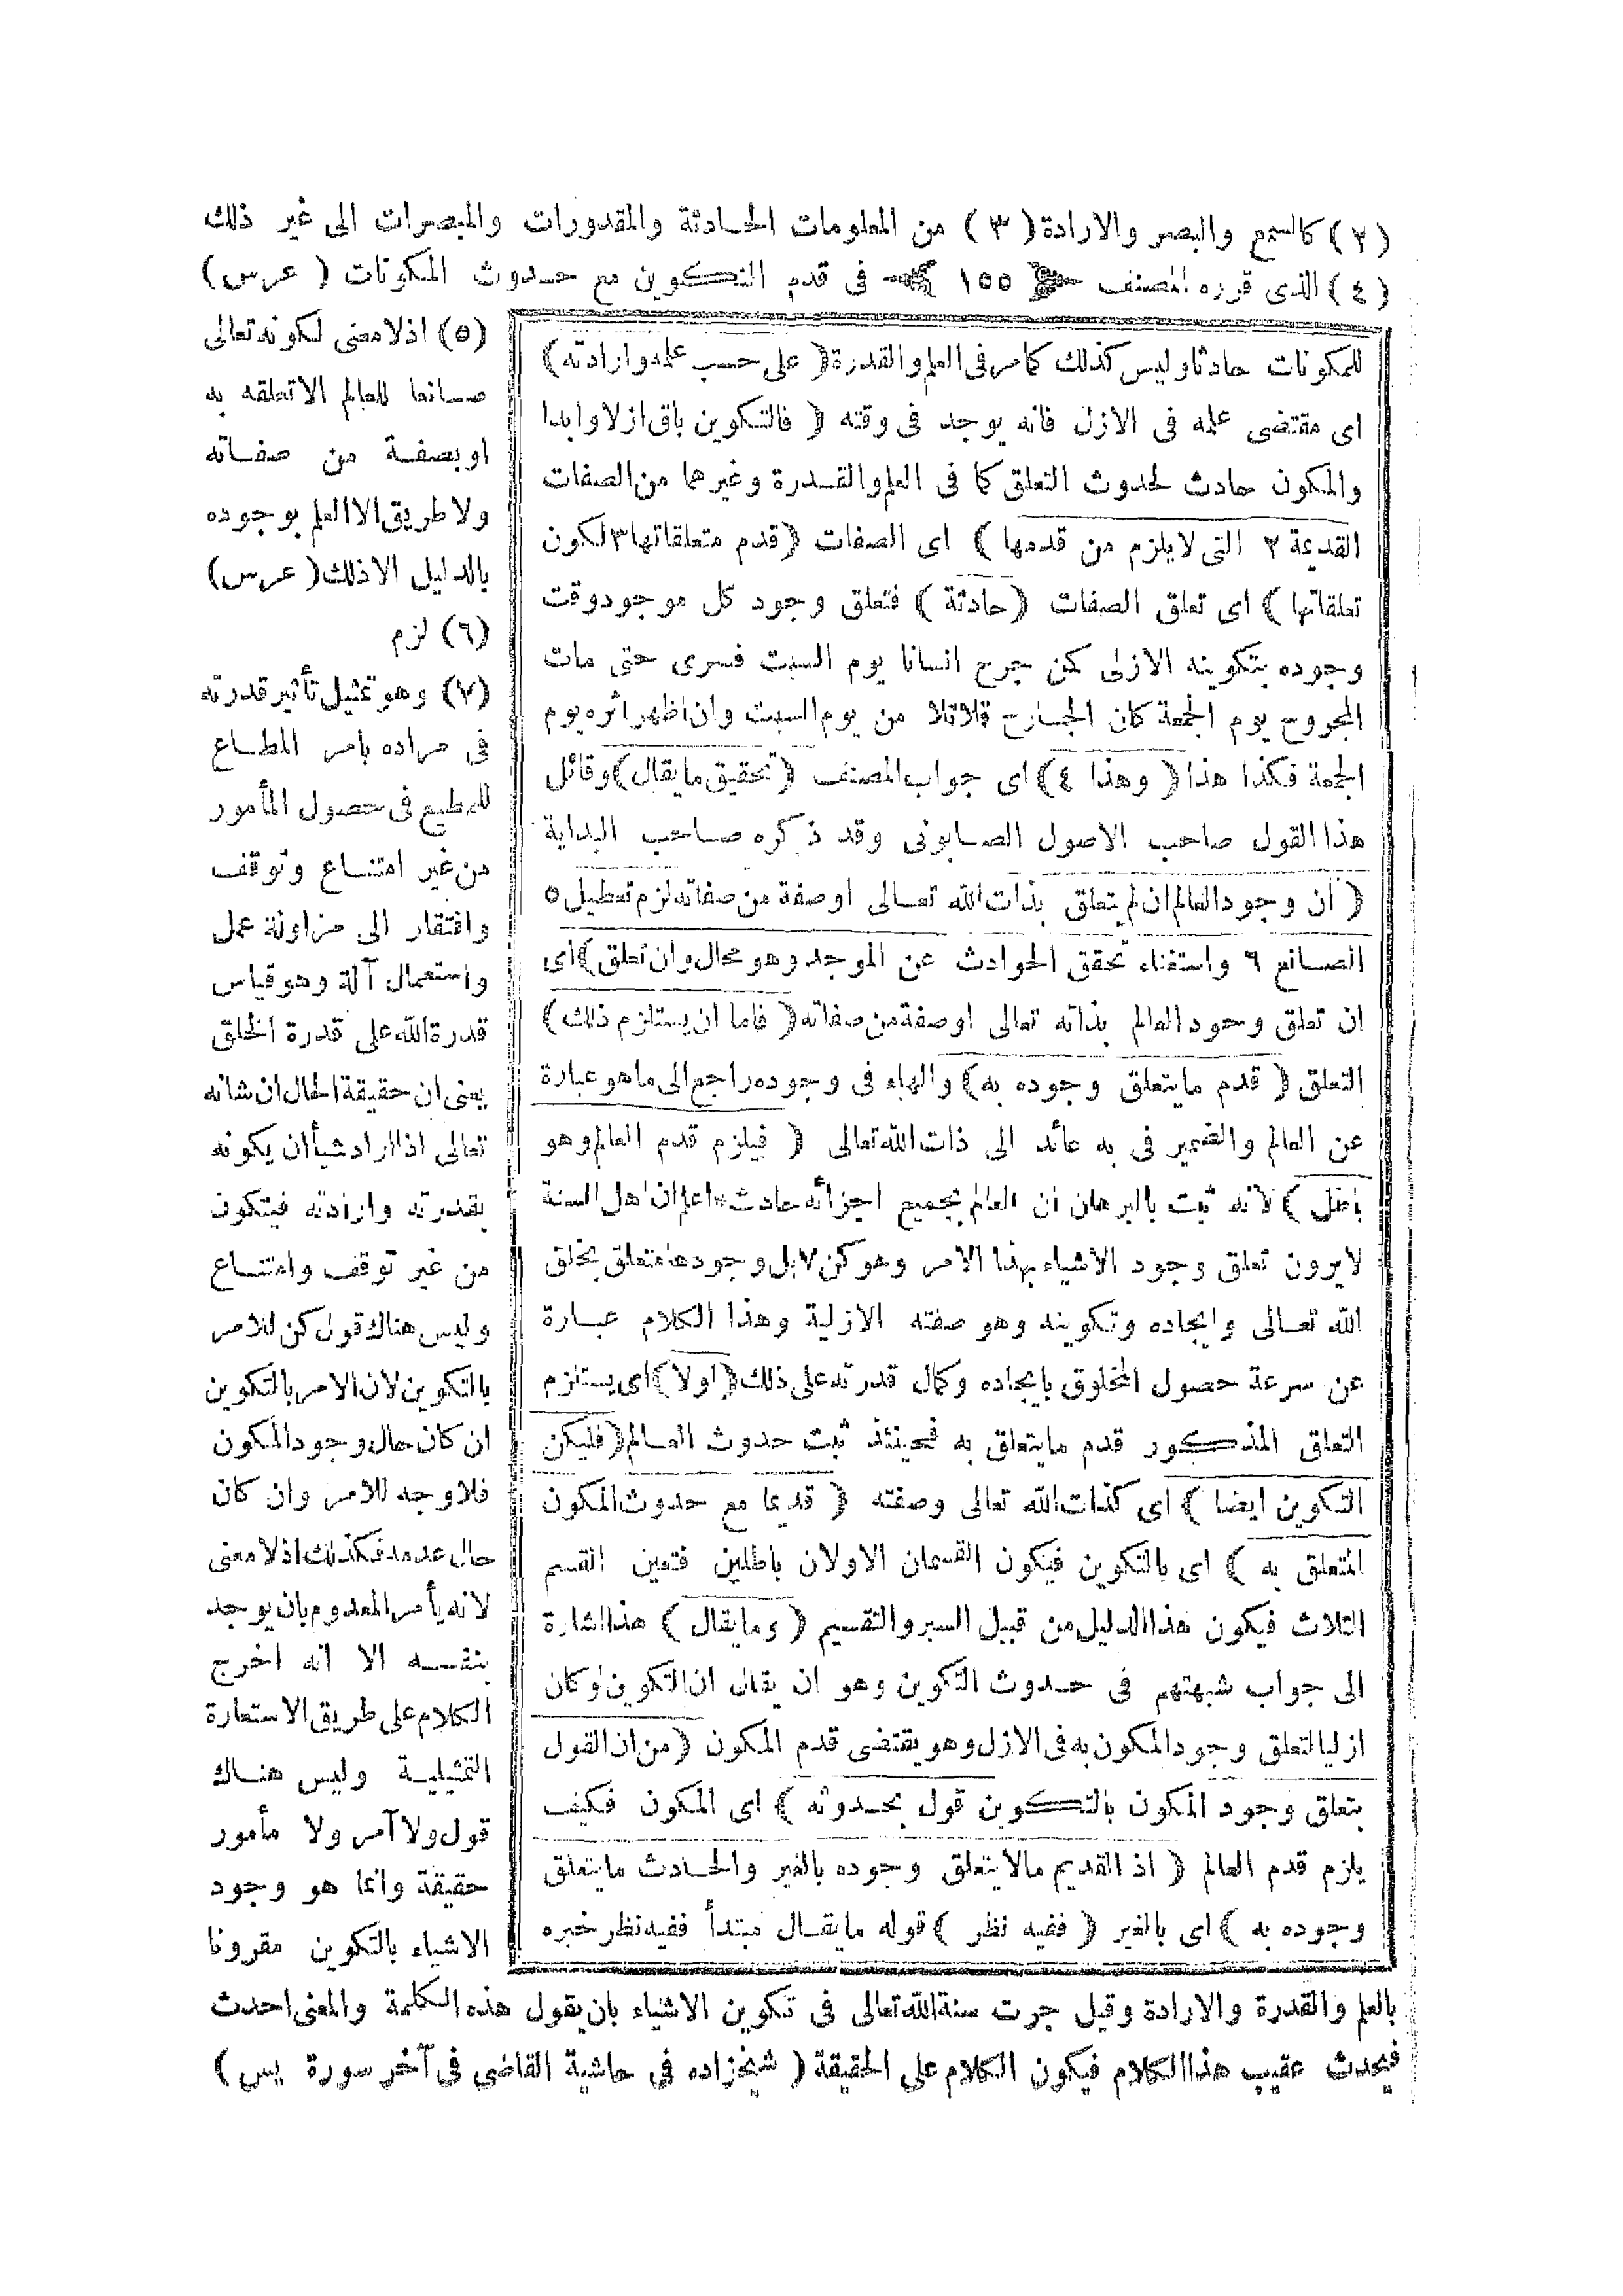 (٢) كالسمع والبصر والارادة (٣) من المعلومات الحادثة والمقدورات والمبصرات الى غير ذلك
(٤) الذى قرره المصنف ١٥٥ فى قدم التكوين مع حدوث المكونات (عرس)
للمكونات حادثا وليس كذلك كما مر فى العلم والقدرة (على حسب علمه وارادته)
اى مقتضى علمه فى الازل فانه يوجد فى وقته (فالتكوين باق ازلا وابدا
والمكون حادث لحدوث التعلق كما فى العلم والقدرة وغيرهما من الصفات
القديمة ٢ التى لا يلزم من قدمها) اى الصفات (قدم متعلقاتها ٣ لكون
تعلقاتها) اى تعلق الصفات (حادثة) فتعلق وجود كل موجود وقت
وجوده بتكوينه الازلى كمن جرح انسانا يوم السبت فسرى حتى مات
المجروح يوم الجمعة كان الجارح قاتلا من يوم السبت وان اظهر اثره يوم
الجمعة فكذا هذا (وهذا ٤) اى جواب المصنف (تحقيق ما يقال) وقائل
هذا القول صاحب الاصول الصابونى وقد ذكره صاحب البداية
(ان وجود العالم ان لم يتعلق بذات الله تعالى او صفة من صفاته لزم تعطيل ٥
الصانع ٦ واستغناء تحقق الحوادث عن الموجد وهو محال وان تعلق) اى
ان تعلق وجود العالم بذاته تعالى او صفة من صفاته (فاما ان يستلزم ذلك)
التعلق (قدم ما يتعلق وجوده به) والهاء فى وجوده راجع الى ما هو عبارة
عن العالم والضمير فى به عائد الى ذات الله تعالى (فيلزم قدم العالم وهو
باطل) لانه ثبت بالبرهان ان العالم بجميع اجزائه حادث * اعلم ان اهل السنة
لا يرون تعلق وجود الاشياء بهذا الامر وهو كن ٧ بل وجودها متعلق بخلق
الله تعالى وايجاده وتكوينه وهو صفته الازلية وهذا الكلام عبارة
عن سرعة حصول المخلوق بايجاده وكمال قدرته على ذلك (اولا) اى يستلزم
التعلق المذكور قدم ما يتعلق به فحينئذ ثبت حدوث العالم (فليكن
التكوين ايضا) اى كذات الله تعالى وصفته (قديما مع حدوث المكون
المتعلق به) اى بالتكوين فيكون القسمان الاولان باطلين فتعين القسم
الثلاث فيكون هذا الدليل من قبيل السبر والتقسيم (وما يقال) هذا اشارة
الى جواب شبهتهم فى حدوث التكوين وهو ان يقال ان التكوين لو كان
ازليا لتعلق وجود المكون به فى الازل وهو يقتضى قدم المكون (من ان القول
بتعلق وجود المكون بالتكوين قول بحدوثه) اى المكون فكيف
يلزم قدم العالم (اذ القديم مالا يتعلق وجوده بالغير والحادث ما يتعلق
وجوده به) اى بالغير (ففيه نظر) قوله ما يقال مبتدأ ففيه نظر خبره
(٥) اذ لا معنى لكونه تعالى
صانعا للعالم الا تعلقه به
او بصفة من صفاته
ولا طريق الا العلم بوجوده
بالدليل الا ذلك (عرس)
(٦) لزم
(٧) وهو تمثيل تأثير قدرته
فى مراده بامر المطاع
للمطيع فى حصول المأمور
من غير امتناع وتوقف
وافتقار الى مزاولة عمل
واستعمال آلة وهو قياس
قدرة الله على قدرة الخلق
يعنى ان حقيقة الحال ان شانه
تعالى اذا اراد شيأ ان يكونه
بقدرته وارادته فيتكون
من غير توقف وامتناع
وليس هناك قول كن للامر
بالتكوين لان الامر بالتكوين
ان كان حال وجود المكون
فلا وجه للامر وان كان
حال عدمه فكذلك اذ لا معنى
لانه يأمر المعدوم بان يوجد
بنفسه الا انه اخرج
الكلام على طريق الاستعارة
التمثيلية وليس هناك
قول ولا آمر ولا مأمور
حقيقة وانما هو وجود
الاشياء بالتكوين مقرونا
بالعلم والقدرة والارادة وقيل جرت سنة الله تعالى فى تكوين الاشياء بان يقول هذه الكلمة والمعنى احدث
فيحدث عقيب هذا الكلام فيكون الكلام على الحقيقة (شيخزاده في حاشية القاضى فى آخر سورة يس)